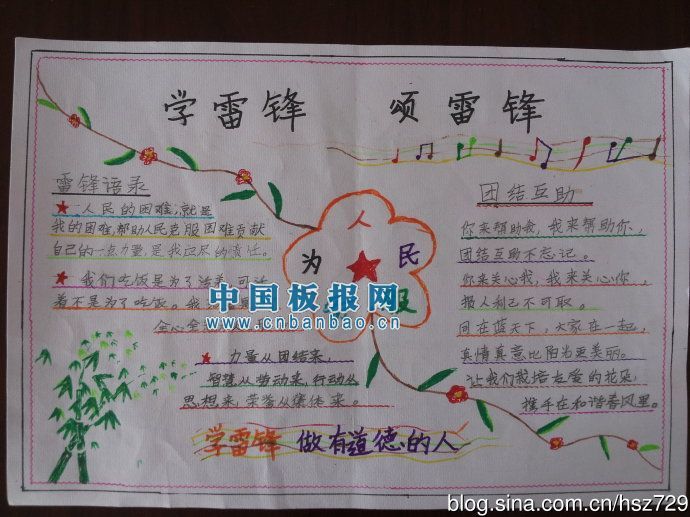 学雷锋 颂雷锋
雷锋语录
人民的困难,就是
我的困难,帮助人民克服困难贡献
自己的一点力量,是我应尽的责任。
我们吃饭是为了活着,可活
着不是为了吃饭。我
全心全
力量从团结来,
智慧从劳动来,行动从
思想来,荣誉从集体来。
为人民服
团结互助
你来帮助我,我来帮助你,
团结互助不忘记。
你来关心我,我来关心你,
损人利己不可取。
同在蓝天下,大家在一起,
真情真意比阳光更美丽。
让我们栽培友爱的花朵,
携手在和谐春风里。
学雷锋 做有道德的人
中国板报网
www.cnbanbao.cn
blog.sina.com.cn/hsz729